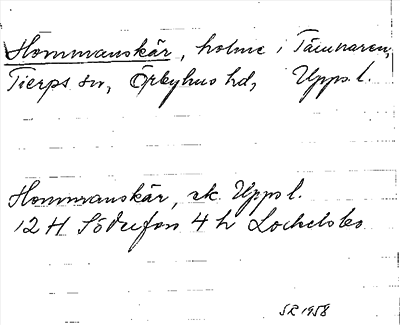 Hommanskär, holme i Tämnaren,
Tierps sn, Örbyhus hd, Upps l.
Hommanskär, sk. Upps l.
12 H Söderfors 4 h
SR 1958